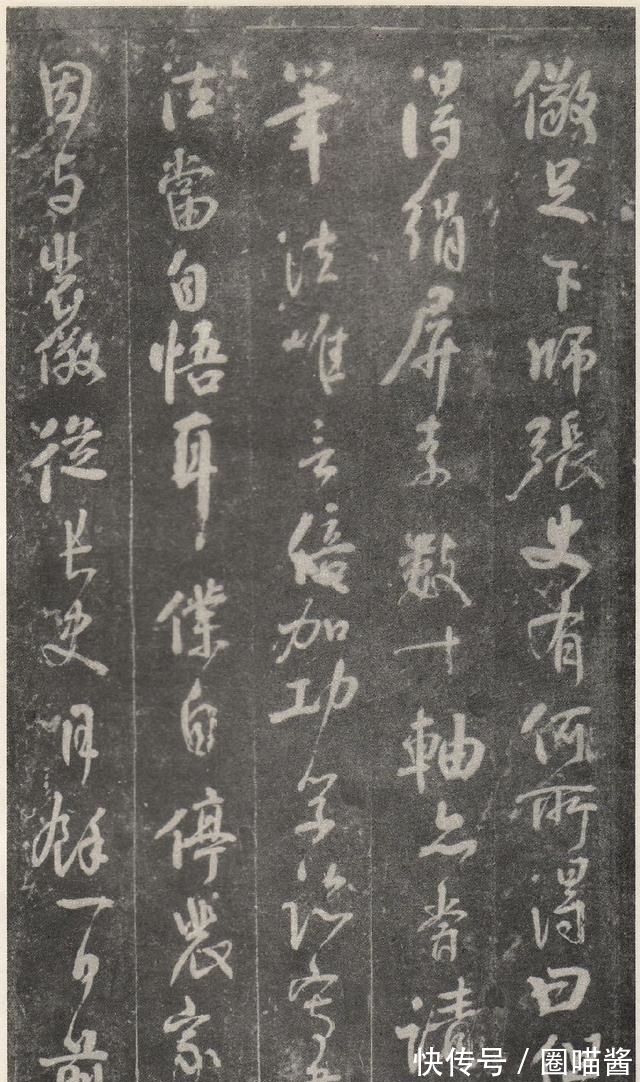 儆足下師張史有何所得曰
得絹屏素數十軸亦嘗請
筆法唯言倍加功學臨寫
法當自悟耳僕自停裴家
因与裴儆從長史月餘一日前
快传号 / 圈喵酱